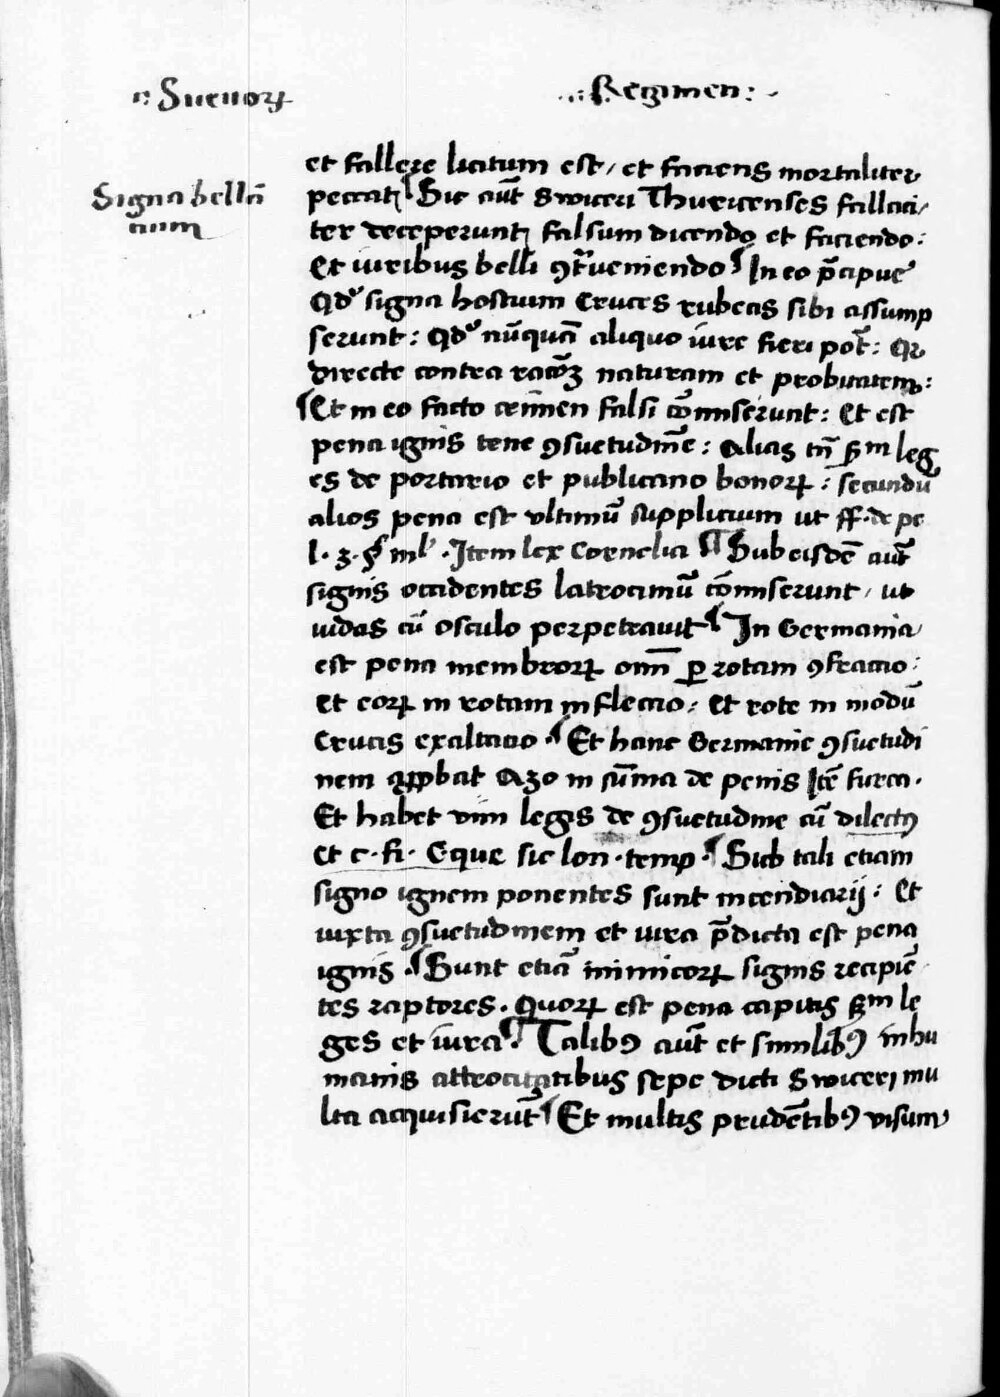 Sueuoꝝ
Regimen:
Signa bellā
cium
et fallere licitum est, et faciens mortaliter
peccat. Sic aut̄ Swiceri Thuricenses fallaci,
ter deceperunt falsum dicendo et faciendo:
Et iuribus belli ꝯt̄ueniendo In eo p̄cipue
Qd' signa hostium cruces rubeas sibi assump
serunt: Qd' nūquā aliquo iure fieri pot̄: Qr
directe contra racōꝫ naturam et probitatem:
Et in eo facto crimen falsi cōmiserunt: Et est
pena ignis tene ꝯsuetudinē: Alias tn̄ s̄m leg
es de portario et publicano bonoꝝ: secundū
alios pena est vltimū supplicium ut ff. de pe
l. 3. § ml'. Item lex Cornelia Sub eisdē aut̄
signis occidentes latrociniū cōmiserunt, ut
iudas cū osculo perpetrauit In Germania
est pena membroꝝ om̄ ꝑ rotam ꝯfractio:
Et eoꝝ in rotam inflectio: Et rote in modū
Crucis exaltacio. Et hanc Germanie ꝯsuetudi
nem ꝓbat Azo in sūma de penis Itē furca.
Et habet vim legis de ꝯsuetudine cū dilectꝯ
et c. fi. Eque sic lon. temp. Sub tali etiam
signo ignem ponentes sunt incendiarij: Et
iuxta ꝯsuetudinem et iura p̄dicta est pena
ignis. Sunt etiā inimicoꝝ signis recipiē
tes raptores. Quoꝝ est pena capitis s̄m le
ges et iura. Talibꝯ aut̄ et similibꝯ inhu
manis attrocitatibus sepe dicti Swiceri mu
lta acquisierūt Et multis prudētibꝯ visum